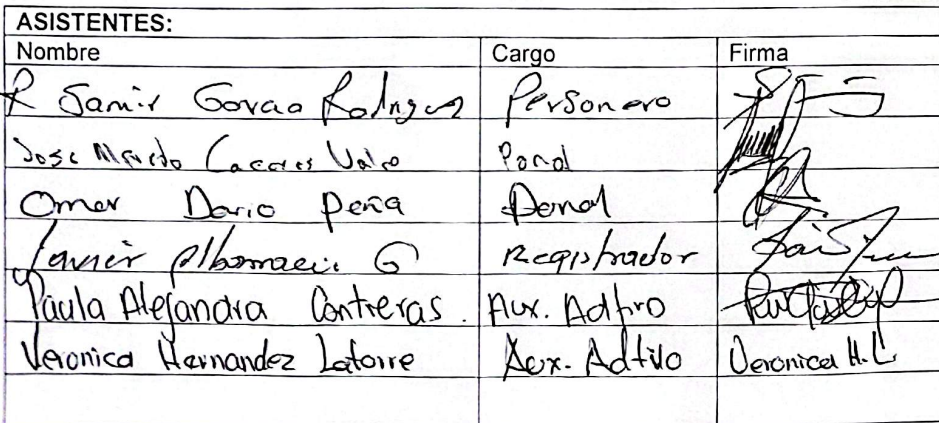 ASISTENTES:
Nombre Cargo Firma
R Samir Garcia Rodriguez Personero
Jose Caceres Ponal
Omar Dario Peña Ponal
Javier G Registrador
Paula Alejandra Contreras. Aux. Adtivo
Veronica Hernandez Latorre Aux. Adtivo Veronica H.L